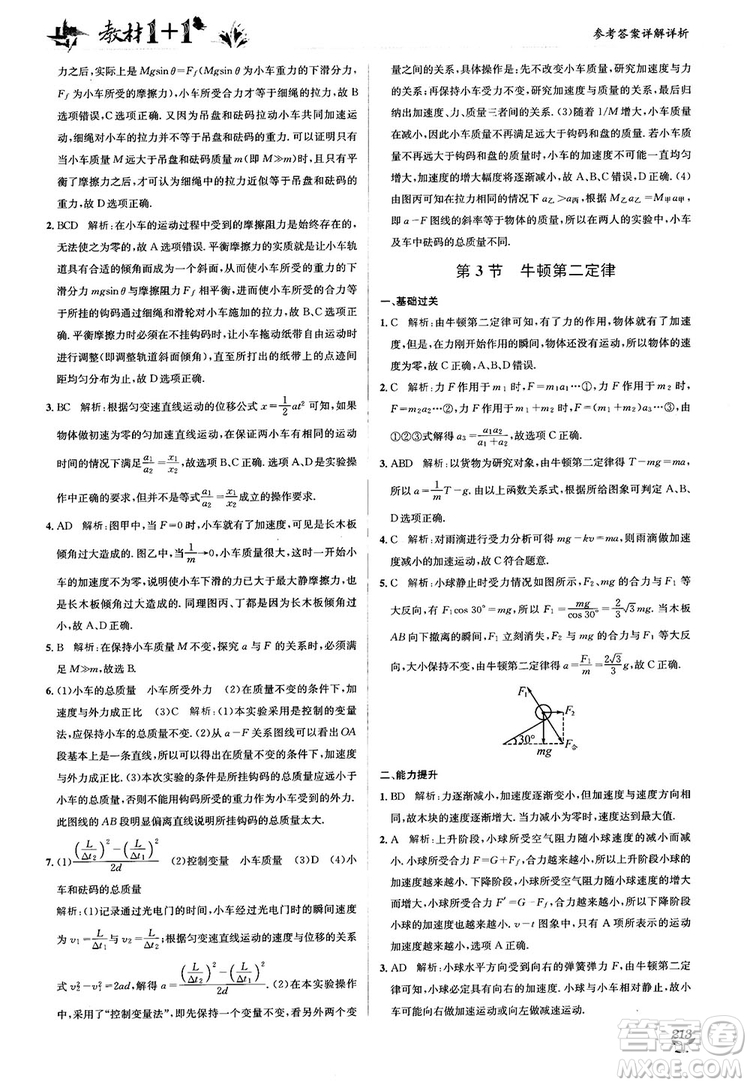 教材1+1
参考答案详解详析
力之后，实际上是 Mgsin θ=Ff(Mgsin θ 为小车所受的下滑分力，
Ff 为小车所受的摩擦力)，小车所受合力才能等于拉力，故 B
选项错误，C 选项正确。又因为小车与吊盘和砝码共同做加速
运动，细绳对小车的拉力并不等于吊盘和砝码的重力，只有
当小车质量 M 远大于吊盘和砝码质量(即 M≫m)，且小车平
衡了摩擦力之后，细绳对小车的拉力近似等于吊盘和砝码的重
力，故 D 选项正确。
2. BCD　解析：在小车的运动过程中受到的摩擦阻力是始终存在的，
无法使之为零的，故 A 选项错误。平衡摩擦力的实质就是让小车轨
道具有合适的倾角而成为一个斜面，小车所受的重力的下滑分
力 mgsin θ 与小车所受的摩擦力大小相等、方向相反而互相
平衡，小车所受的合外力才等于小车所受的拉力，即钩码的重
力通过细绳和滑轮对小车施加的拉力，故 B、C 选项
正确。平衡摩擦力时必须在不挂钩码时让小车拖动纸带自由运动时
进行调整(即调整轨道斜面倾角)，直至所打出的纸带上的点迹间
距均匀分布为止，故 D 选项正确。
3. BC　解析：根据匀变速直线运动的位移公式 x=1/2at² 可知，如果
物体做初速为零的匀加速直线运动，在保证两小车有相同的运动
时间时一定有 a₁/a₂=x₁/x₂，故选项 B、C 正确，选项 A、D 是实验
操作中正确的要求，但不是 a₁/a₂=x₁/x₂ 成立的操作要求。
4. AD　解析：图甲中，当 F=0 时，小车就有了加速度，可见是长木板
倾角过大造成的。图乙中，当 1/m→0，小车在不受细绳的拉力时，小车
的加速度不为零，说明使小车下滑的力已大于最大静摩擦力，也
是长木板倾角过大造成的。同理图丙、丁都是因为长木板倾角
过小造成的，故 A、D 选项正确。
5. B　解析：在保持小车质量 M 不变，探究 a 与 F 的关系时，必须满
足 M≫m，故 B 选项正确。
6. (1)小车的总质量　小车所受外力　(2)在质量不变的条件下，加
速度与外力成正比　(3)C　解析：(1)本实验采用的是控制的变量
法，应保持小车的总质量不变。(2)从 a－F 关系图线可以看出 OA
段基本上为一条直线，说明在质量不变的条件下，加
速度与外力成正比。(3)本次实验的条件是所挂钩码的总质量应远小
于小车的总质量，否则不能将钩码所受的重力作为小车所受外力，
此图线的 AB 段明显偏离直线说明所挂钩码的总质量太大。
7. (1)((L/Δt₂)²－(L/Δt₁)²)/2d　(2)控制变量　小车质量　(3)D　(4)小
车和砝码的总质量
解析：(1)记录通过光电门的时间，小车经过光电门时的瞬间速度
为 v₁=L/Δt₁ 与 v₂=L/Δt₂；根据匀变速直线运动的速度与位移的关系
式 v₂²－v₁²=2ad，可得 a=((L/Δt₂)²－(L/Δt₁)²)/2d。(2)在本实验操作
中，采用了“控制变量法”，即在研究加速度与力、质量三个物理
量之间的关系中：先不改变小车质量，研究加速度与力的关
系；再保持小车所受的合力不变，研究加速度与质量的关系，最后
归纳出加速度与力、质量三者间的关系。(3)随着 1/M 增大，小车质量
在减小，当小车质量不再满足远大于钩码和盘的质量时，若小车质
量仍继续减小，则小车的加速度不可能一直均匀
增大，加速度的增大幅度将逐渐减小，故选项 D 正确。(4)
由图可知在拉力相同的情况下 a乙＞a丙，根据 M乙a乙=M甲a甲，
即 a－F 图线的斜率等于物体的质量，所以在两人的实验中，小车
及车中砝码的总质量不同。
第 3 节　牛顿第二定律
一、基础过关
1. C　解析：由牛顿第二定律可知，有了力的作用，物体就有了加速
度，但在力刚开始作用于物体的瞬间，物体有加速度，但速度仍为
零，故 C 选项正确，A、B、D 选项错误。
2. C　解析：力 F 作用于 m₁ 时，F=m₁a₁…①　力 F 作用于 m₂ 时，
F=m₂a₂…②　力 F 作用于 m₁+m₂ 时，F=(m₁+m₂)a₃…③　由
①②③式解得 a₃=a₁a₂/(a₁+a₂)，故选项 C 正确。
3. ABD　解析：以货物为研究对象，由牛顿第二定律得 T－mg=ma，
所以 a=1/m T－g。由以上函数关系对照图象可知 A、B、D 选
项正确。
4. C　解析：对雨滴进行受力分析可得 mg－kv=ma，则雨滴做加速
度减小的加速运动，故选择 C 符合题意。
5. C　解析：小球静止时受力情况如图所示，F₂、mg 的合力与 F₁ 等
大反向，有 F₁cos 30°=mg，所以 F₁=mg/cos 30°=2/3√3mg。当木板
AB 向下撤离的瞬间，F₁ 立刻消失，F₂、mg 不变，其合力与 F₁ 等大反
向，大小保持不变，由牛顿第二定律得 a=F₁/m=2√3/3 g，故 C 选项
正确。
F₁
F₂
30°
mg
F合
二、能力提升
1. BD　解析：力逐渐减小，加速度逐渐减小，但加速度与速度方向相
同，故木块的速度逐渐增大。当力减小到零时，速度达到最大值。
2. A　解析：上升阶段，小球所受空气阻力随速度的减小而越来越
小，合力 F=G+Ff，合力也越来越小，所以上升阶段小球的
加速度越来越小。下降阶段，小球所受空气阻力随速度的增大而
越来越大，合力 F′=G－Ff，合力越来越小，所以下降阶段小球的加
速度也越来越小。v－t 图象中，只有 A 选项所表示的
加速度越来越小，故选项 A 正确。
3. AD　解析：小球水平方向受到向右的弹簧弹力 F，由牛顿第二定
律可知，小球必定具有向右的加速度，小球与小车相对静止，故
小车可能向右做加速运动或向左做减速运动。
213
答案圈